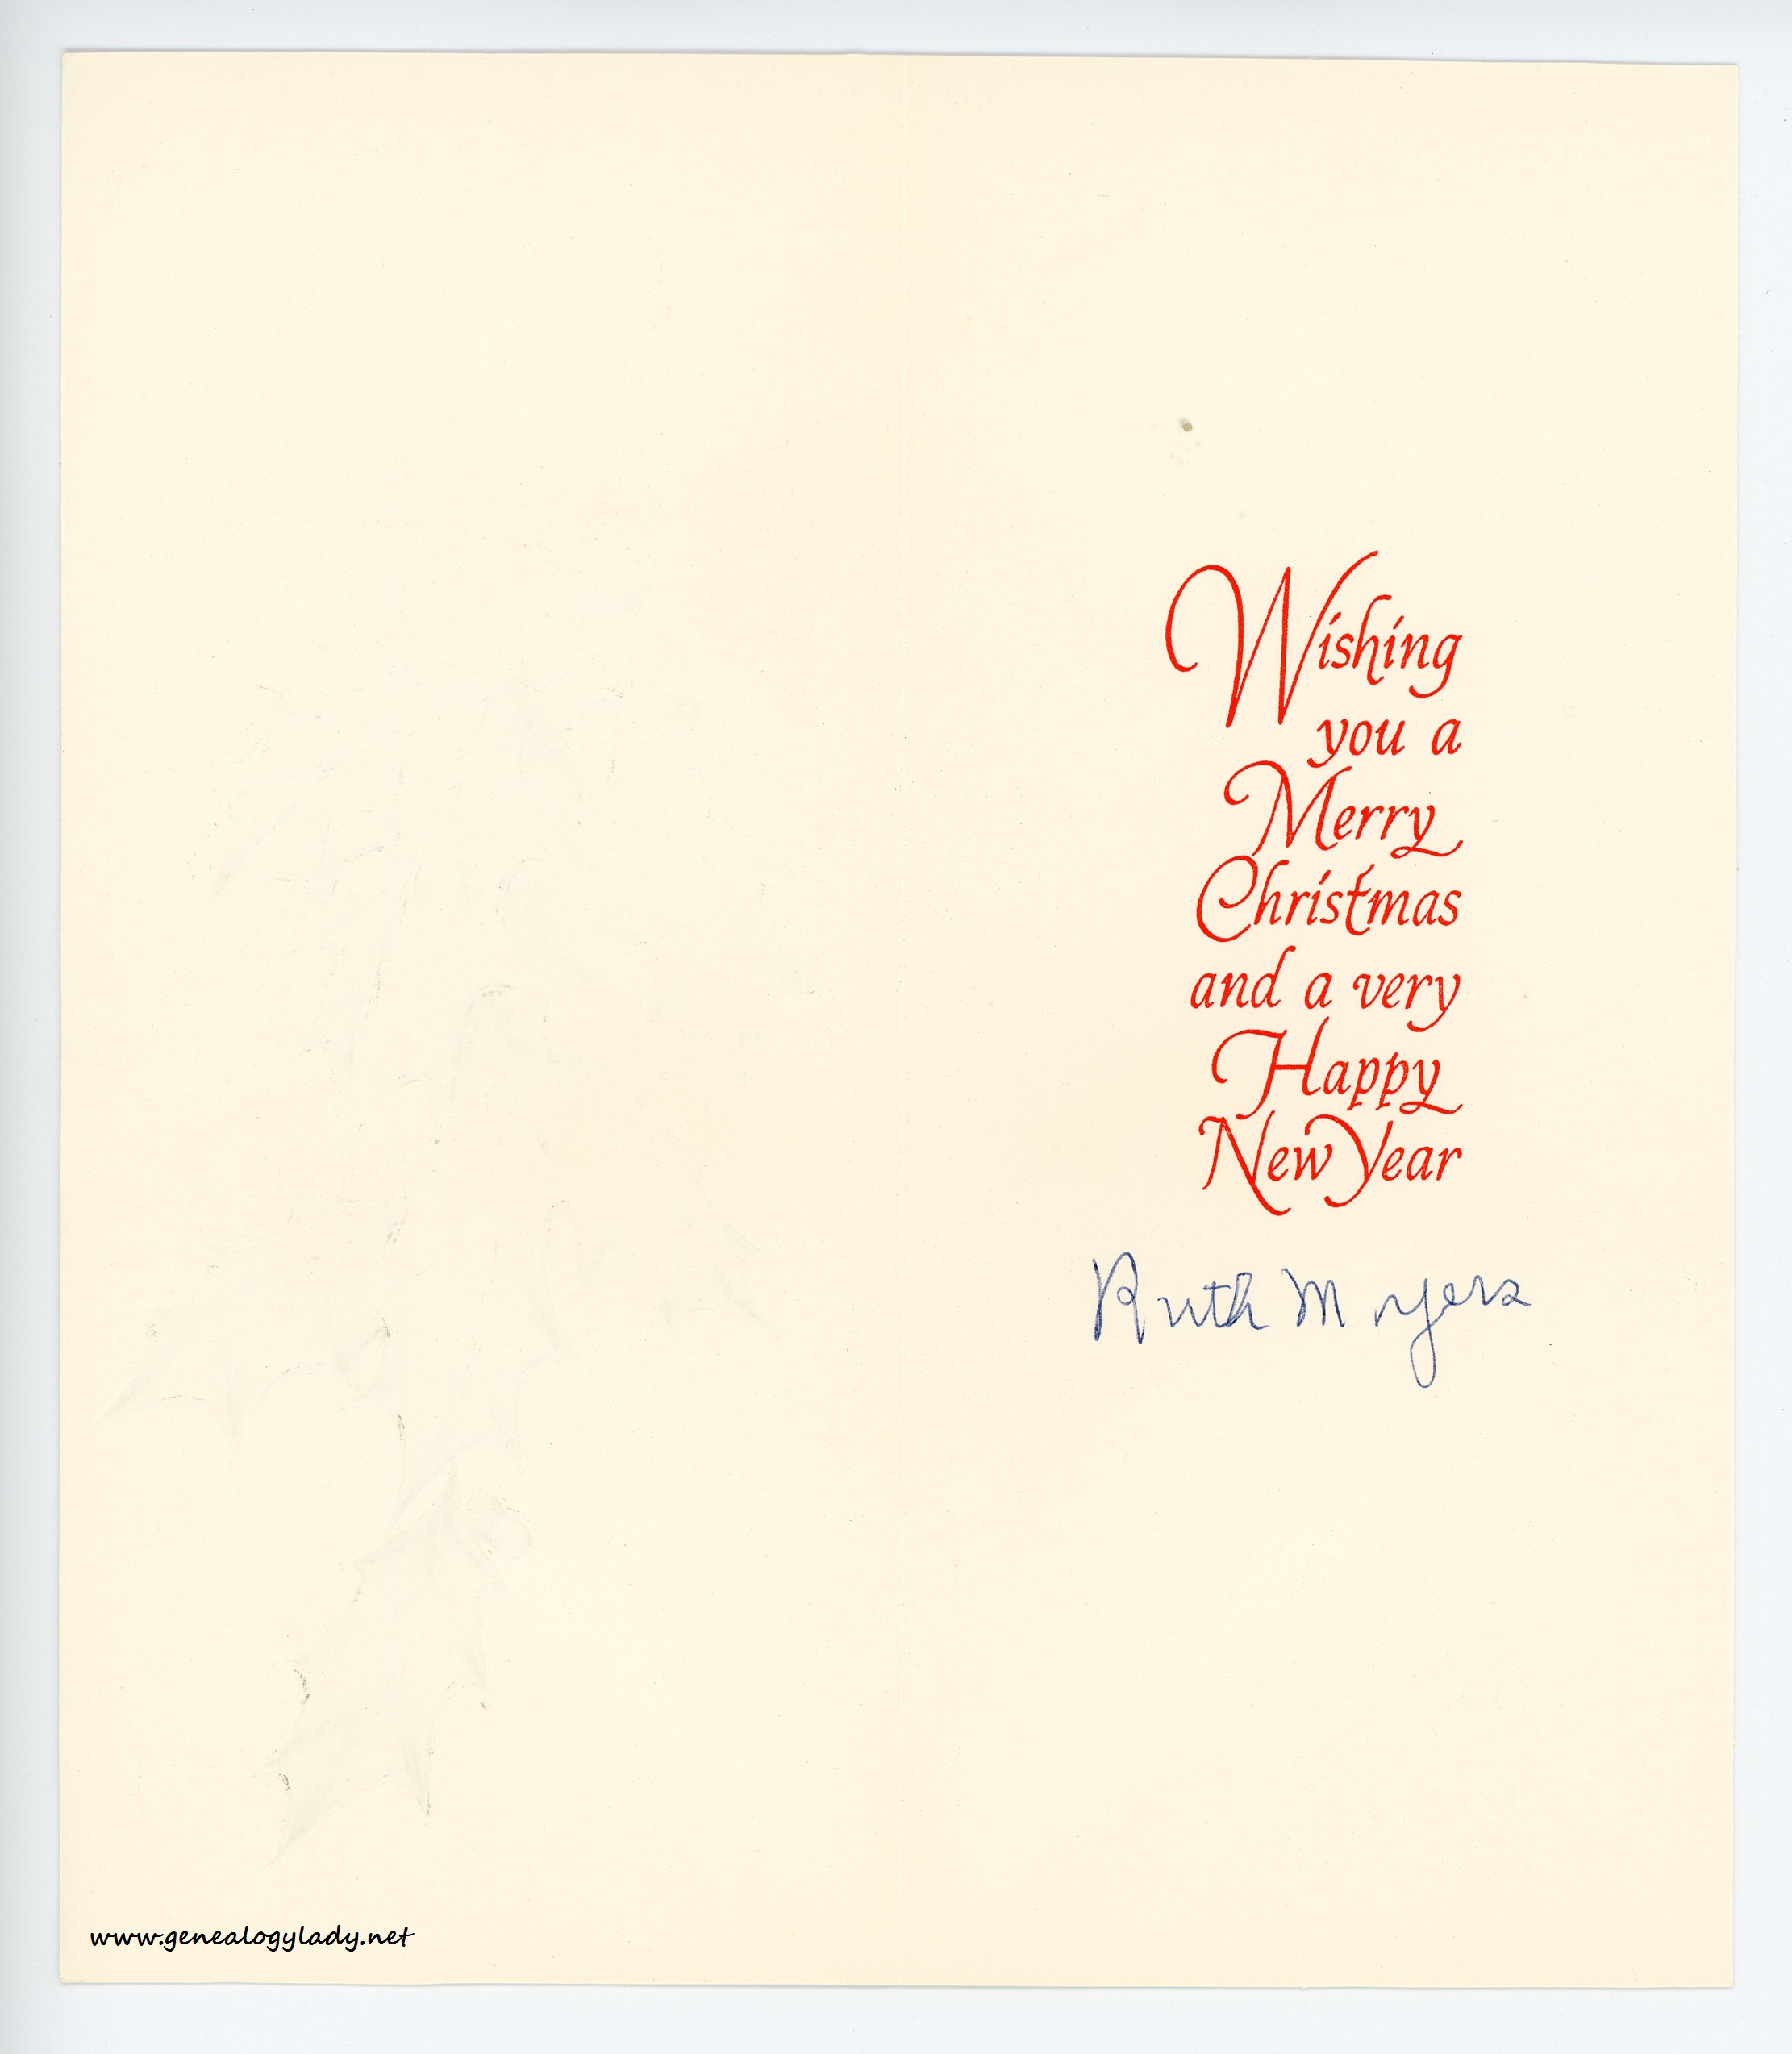 Wishing
you a
Merry
Christmas
and a very
Happy
New Year
Ruth Myers
www.genealogylady.net